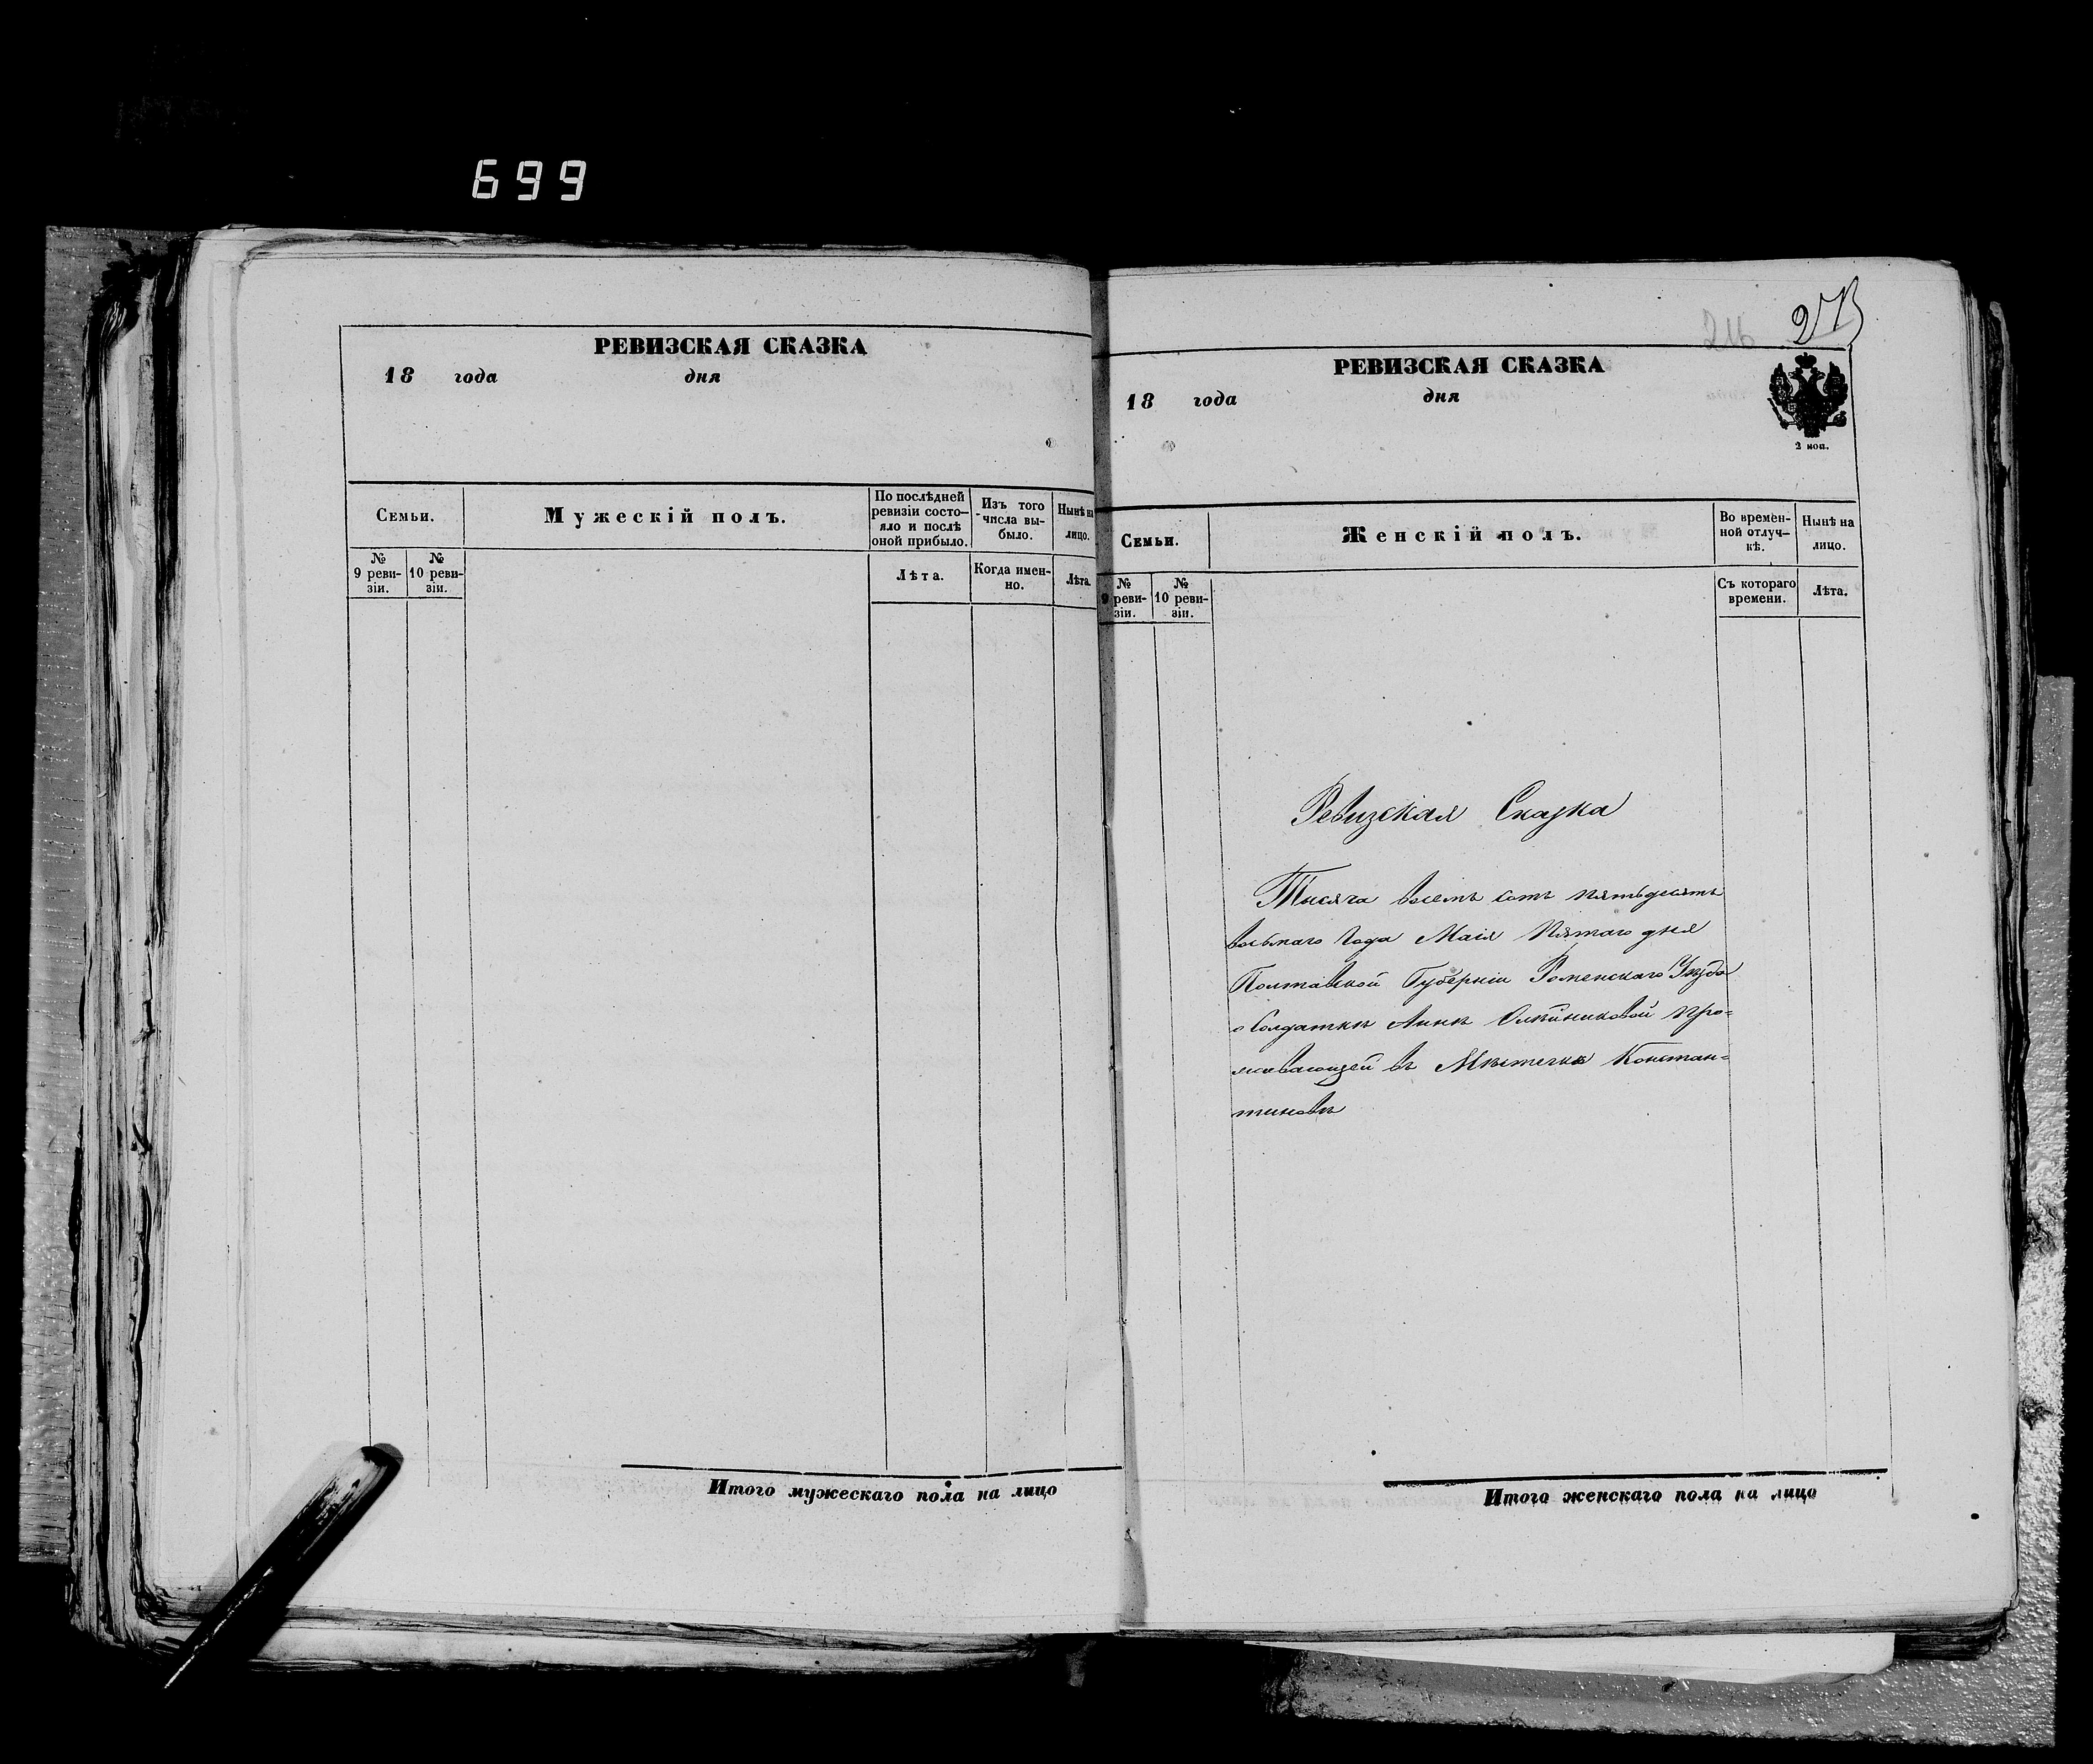 699
РЕВИЗСКАЯ СКАЗКА
18 года дня
Семьи.
Мужескій полъ.
По послѣдней
ревизіи состо—
яло и послѣ
оной прибыло.
Изъ того
числа вы-
было.
Нынѣ на
лицо.
№
9 реви-
зіи.
№
10 реви-
зіи.
Лѣта.
Когда имен-
но.
Лѣта.
Итого мужескаго пола на лицо
216
РЕВИЗСКАЯ СКАЗКА
18 года дня
2 коп.
Семьи.
Женскій полъ.
Во времен-
ной отлуч-
кѣ.
Нынѣ на
лицо.
№
9 реви-
зіи.
№
10 реви-
зіи.
Съ котораго
времени.
Лѣта.
Ревизская Сказка
Тысяча восемъ сотъ пятьдесятъ
восьмаго года Маія Пятаго дня
Полтавской Губерніи Роменскаго Уѣзда
о Солдаткѣ Аннѣ Олѣйниковой про=
живающей въ Мѣстечкѣ Констан=
тиновѣ
Итого женскаго пола на лицо